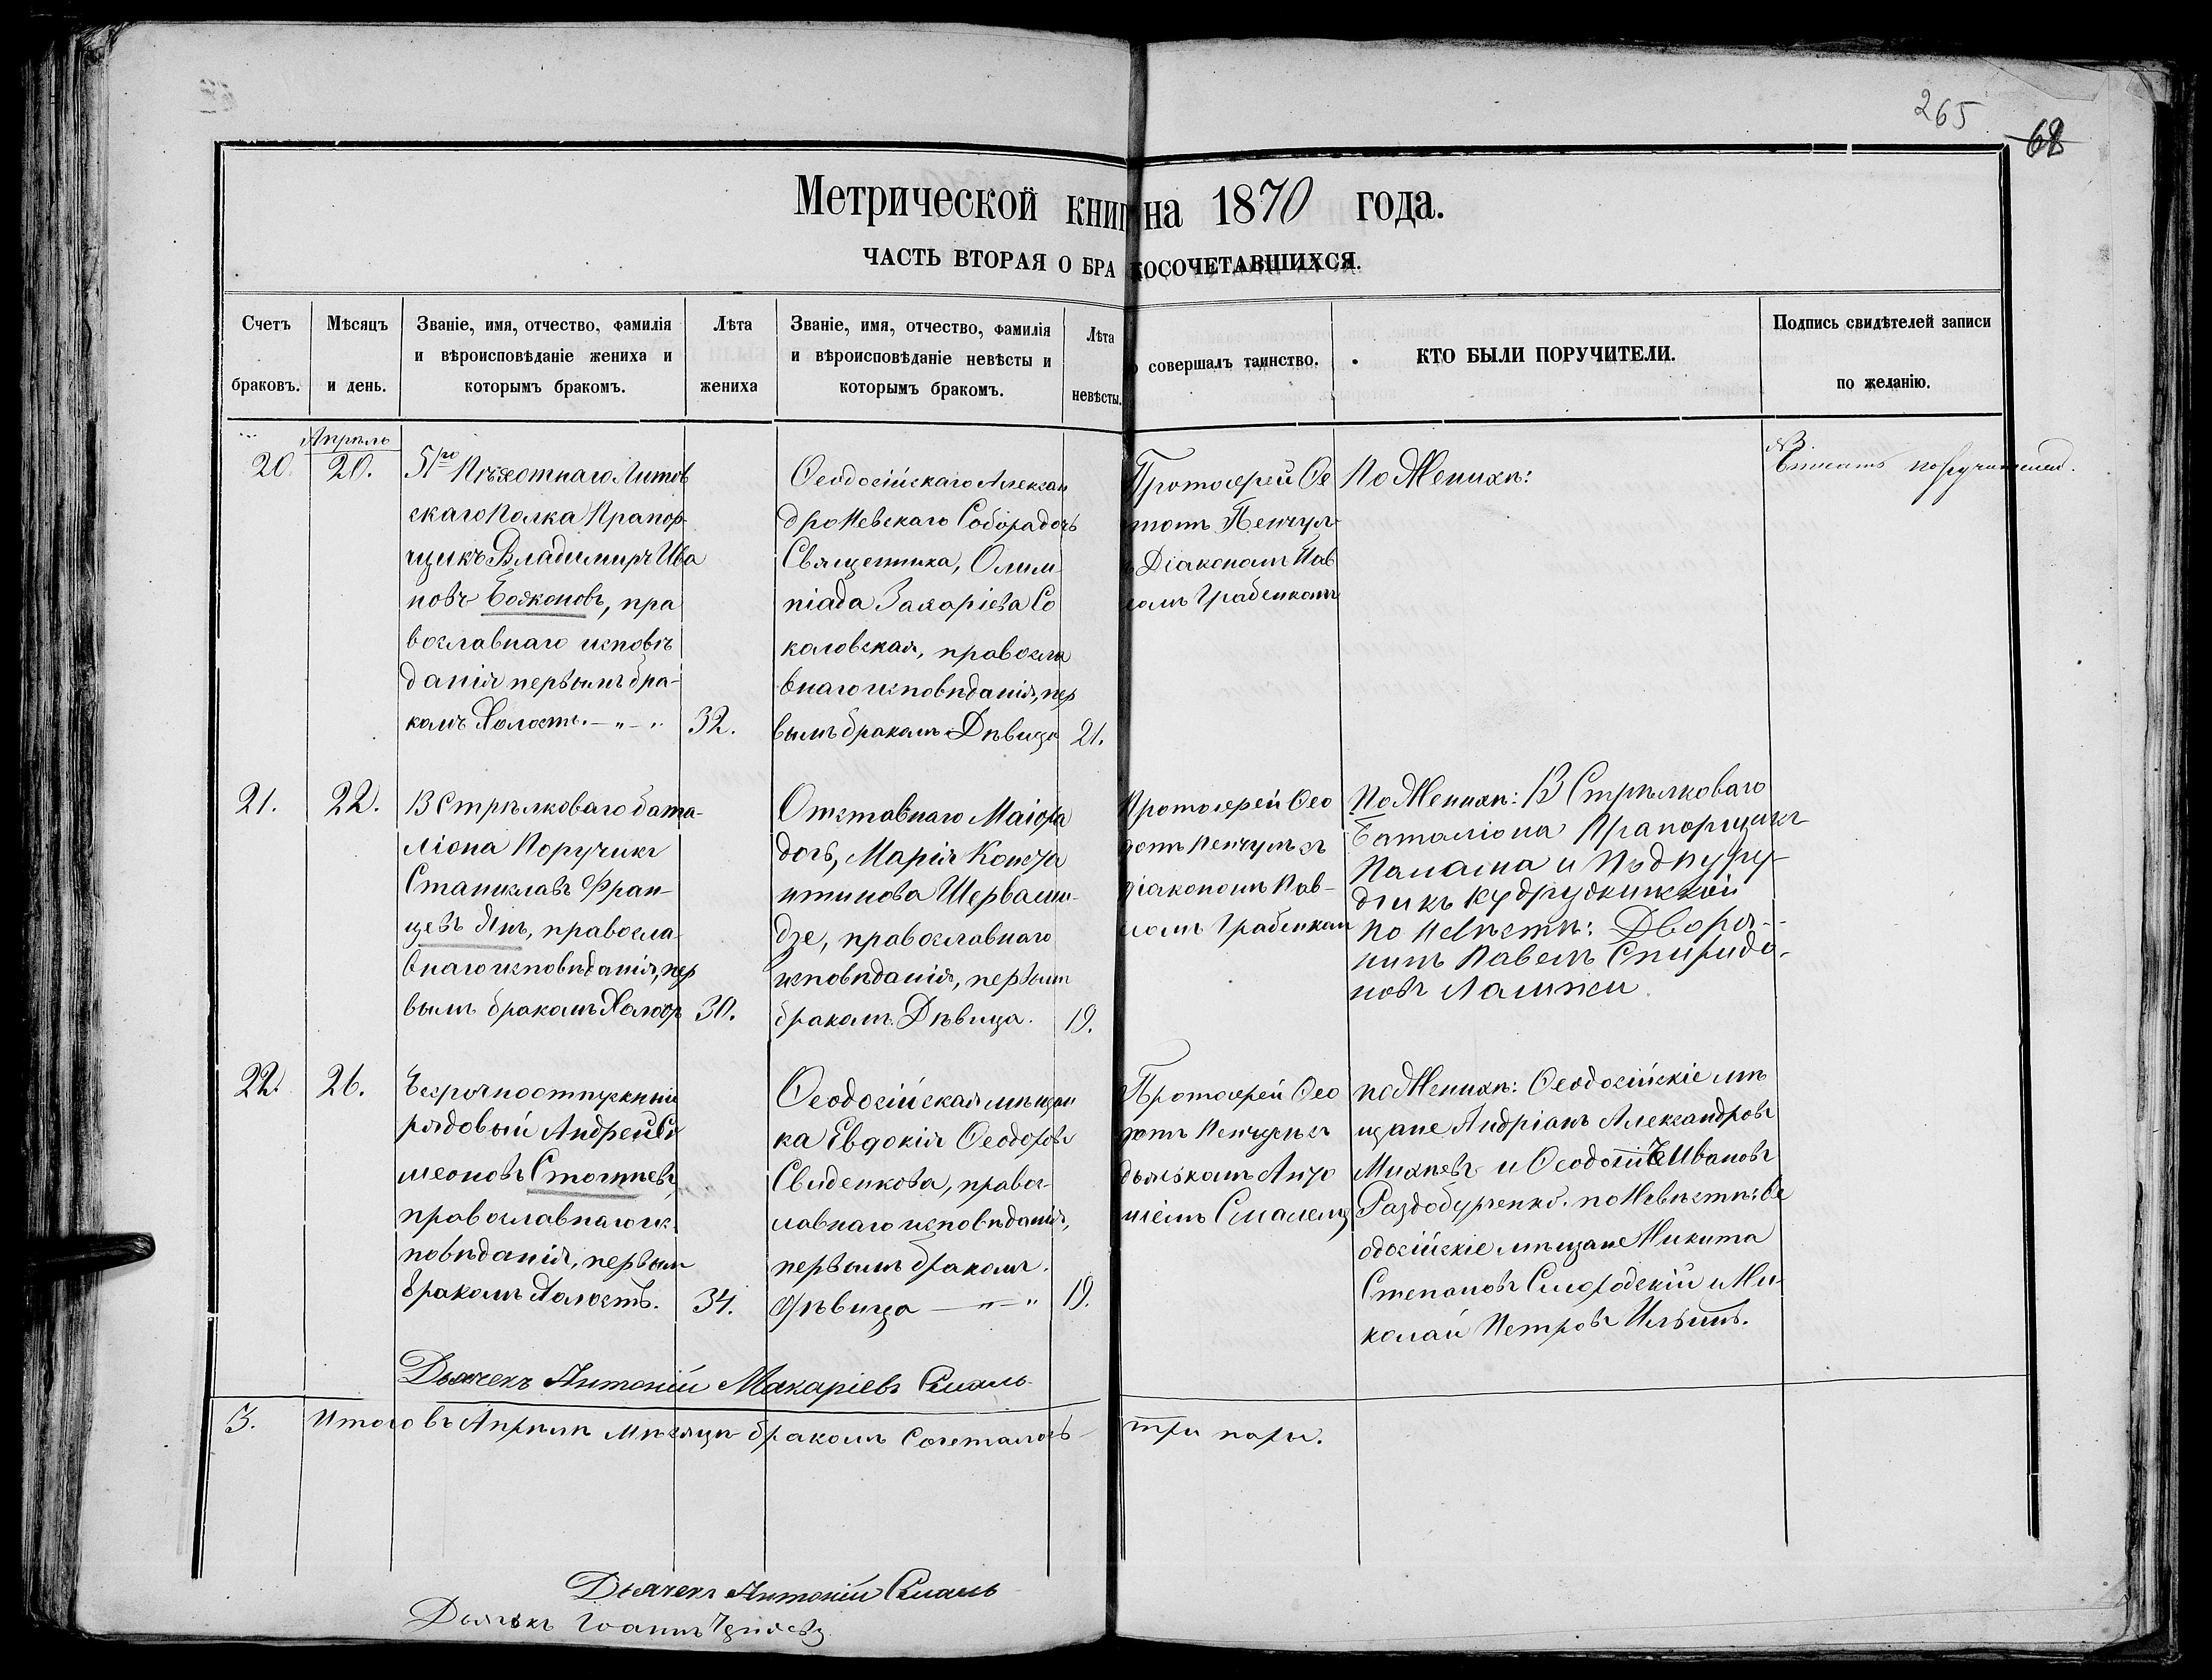 265
68
Метрической книг на 1870 года.
ЧАСТЬ ВТОРАЯ О БРАКОСОЧЕТАВШИХСЯ.
Счетъ браковъ.
Мѣсяцъ и день.
Званіе, имя, отчество, фамилія
и вѣроисповѣданіе жениха и
которымъ бракомъ.
Лѣта
жениха
Званіе, имя, отчество, фамилія
и вѣроисповѣданіе невѣсты и
которымъ бракомъ.
Лѣта
невѣсты.
совершалъ таинство.
КТО БЫЛИ ПОРУЧИТЕЛИ.
Подпись свидѣтелей записи
по желанію.
20.
Апрѣль
20.
51го Пѣхотнаго Литов
скаго Полка Прапор-
щикъ Владимиръ Ива
новъ Бояконовъ, пра
вославнаго исповѣ
данія первымъ бра-
комъ Холостъ. — „ — „
32.
Ѳеодосійскаго Алексан
дро Невскаго Собора дочь
Священника, Олим
піада Захаріева Со
коловская, правосла
внаго исповѣданія, пер
вымъ бракомъ Дѣвица
21.
Протоіерей Ѳе
Пенчулъ
Діакономъ Пав
ломъ Грабенкомъ
По Женихѣ:
поручителей.
21.
22.
13 Стрѣлковаго бата-
ліона Поручикъ
Станиславъ Фран-
цевъ Янъ, правосла
внаго исповѣданія, пер
вымъ бракомъ
30.
Отставнаго Маіора
дочь, Марія Конста
нтинова Шерваши-
дзе, православнаго
исповѣданія, первым
бракомъ. Дѣвица.
19.
Протоіерей Ѳео
дотъ Пенчулъ съ
діакономъ Пав-
ломъ Грабенком
По Женихѣ: 13 Стрѣлковаго
Баталіона Прапорщикъ
и
по Невѣстѣ: Дворя-
нинъ Павелъ Спиридо-
новъ
22.
26.
Безсрочноотпускный
рядовый Андрей Си
меоновъ
православнаго ис-
повѣданія, первым
бракомъ Холостъ.
34.
Ѳеодосійская мѣщан
ка Евдокія Ѳеодоров
Свиденкова, правос-
лавнаго исповѣданія,
первымъ бракомъ.
Дѣвица — „ — „
19.
Протоіерей Ѳео
дотъ Пенчулъ съ
дьячкомъ Анто
ніемъ Смалем
по Женихѣ: Ѳеодосійскіе мѣ
щане Андріанъ Александровъ
Михневъ и Ѳеодосій Ивановъ
Раздобурченко. по Невѣстѣ: Ѳе
одосійскіе мѣщане Никита
Степановъ Смородскій и Ни-
колай Петровъ Ильинъ.
Дьячекъ Антоній Макаріевъ Смаль
3.
Итого въ Апрѣлѣ Мѣсяцѣ бракомъ Сочеталось
три пары.
Дьячекъ Антоній Смаль
Дьячекъ Іоаннъ